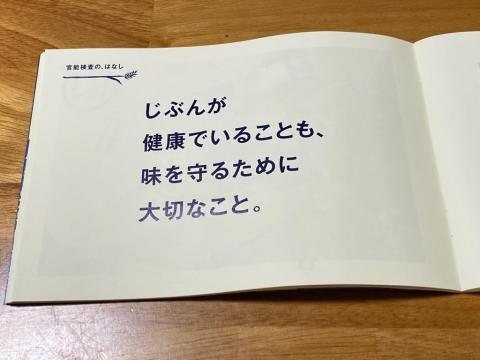 官能検査の、はなし
じぶんが
健康でいることも、
味を守るために
大切なこと。